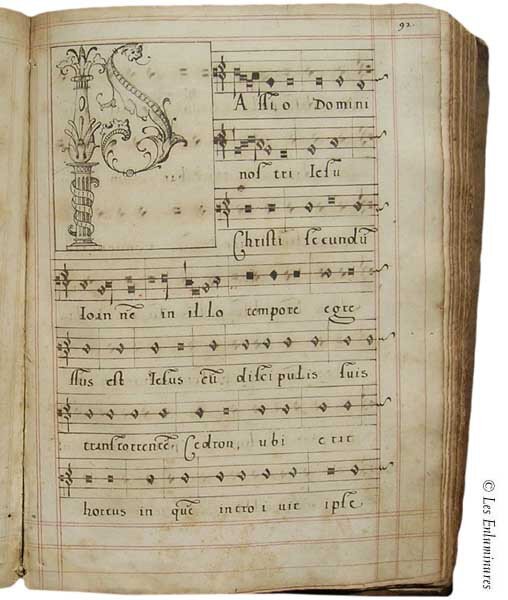 92.
PASSIO DOMINI
nostri Iesu
Christi secundū
Ioannē in illo tempore egre
ssus est Iesus cū discipulis suis
trans torrentē Cedron, ubi erat
hortus in quē introivit ipse
© Les Enluminures